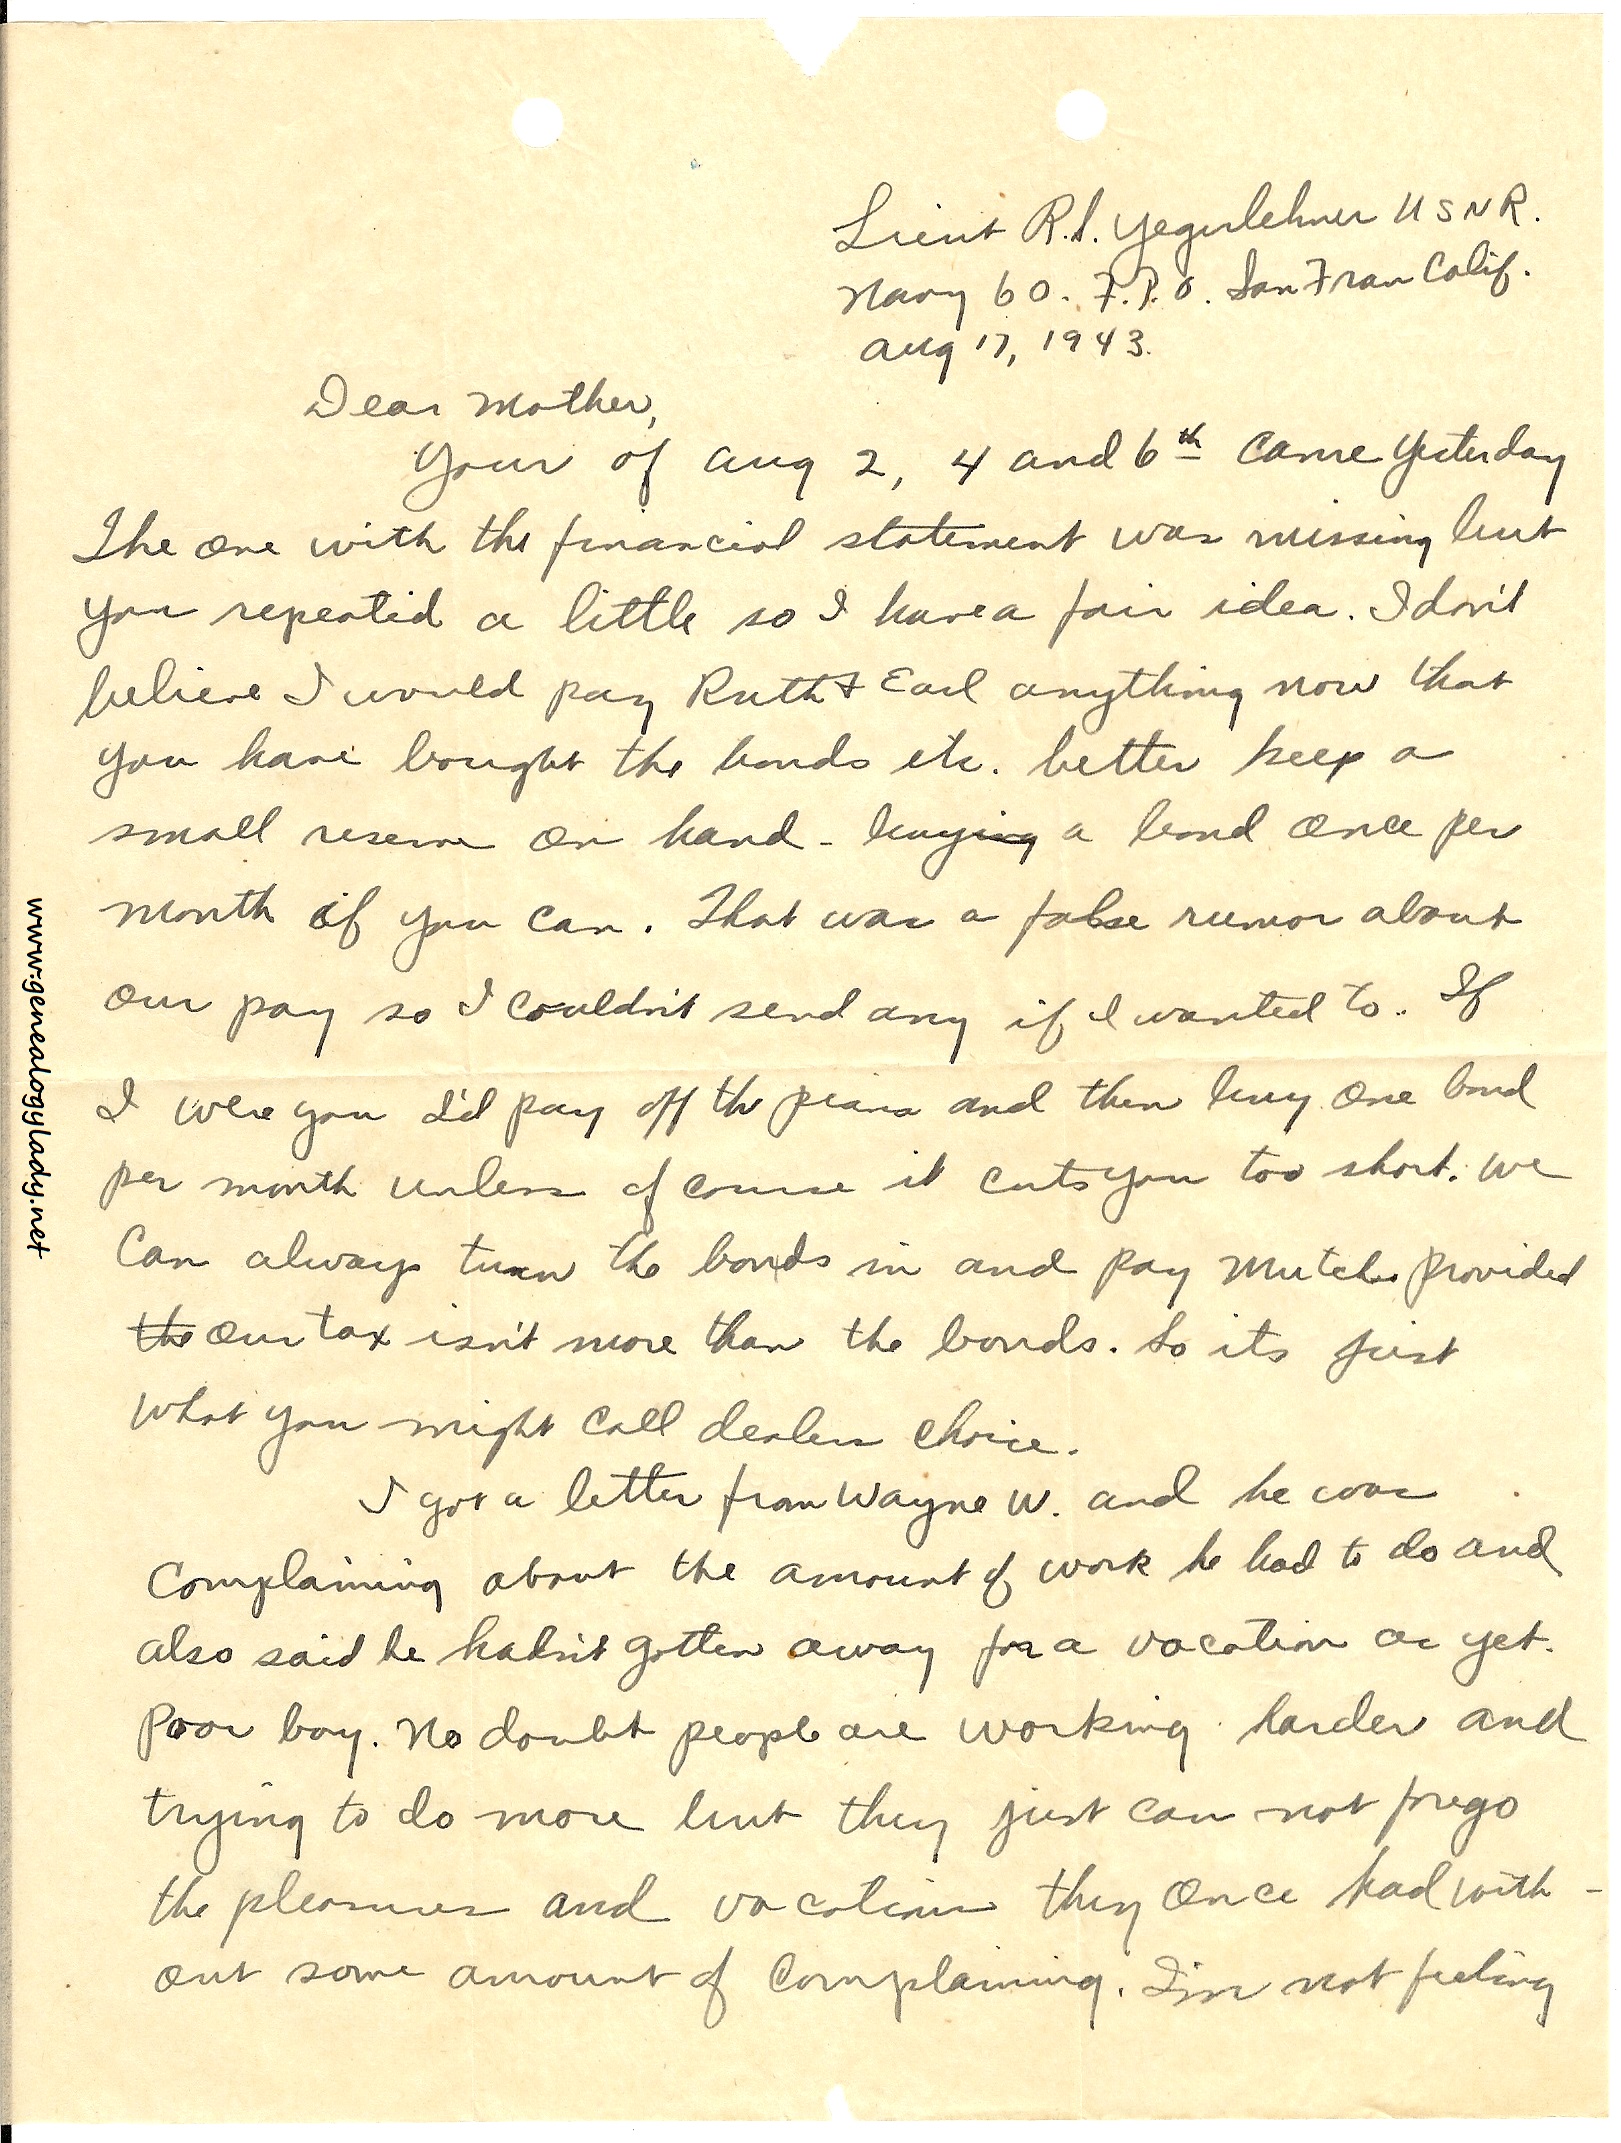 Lieut R.S. Yegerlehner USNR.
Navy 60. F.P.O. San Fran Calif.
Aug 17, 1943.
Dear Mother,
Your of Aug 2, 4 and 6th came yesterday
The one with the financial statement was missing but
you repeated a little so I have a fair idea. I don't
believe I would pay Ruth & Earl anything now that
you have bought the bonds etc. better keep a
small reserve on hand - buying a bond once per
month if you can. That was a false rumor about
our pay so I couldn't send any if I wanted to. If
I were you I'd pay off the piano and then buy one bond
per month unless of course it cuts you too short. We
can always turn the bonds in and pay Mutch provided
the our tax isn't more than the bonds. So its just
what you might call dealers choice.
I got a letter from Wayne W. and he was
complaining about the amount of work he had to do and
also said he hadn't gotten away for a vacation as yet.
Poor boy. No doubt people are working harder and
trying to do more but they just can not forego
the pleasures and vacations they once had with-
out some amount of complaining. I'm not feeling
www.genealogylady.net